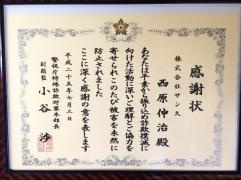 感謝状
株式会社サンズ
西原伸治殿
あなたは平素から振り込め詐欺撲滅に
向けた活動に深いご理解とご協力を
寄せられこのたび被害を未然に
防止されました
ここに深く感謝の意を表します
平成二十五年七月三日
警視庁特殊詐欺対策本部長
副総監 小谷渉